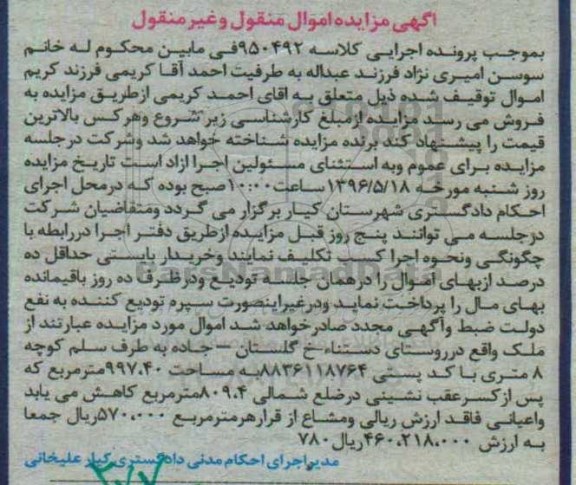 آگهی مزایده اموال منقول و غیر منقول
بموجب پرونده اجرایی کلاسه ۹۵۰۴۹۲فی مابین محکوم له خانم
سوسن امیری نژاد فرزند عبداله به طرفیت احمد آقا کریمی فرزند کریم
اموال توقیف شده ذیل متعلق به اقای احمد کریمی ازطریق مزایده به
فروش می رسد مزایده ازمبلغ کارشناسی زیر شروع وهرکس بالاترین
قیمت را پیشنهاد کند برنده مزایده شناخته خواهد شد وشرکت درجلسه
مزایده برای عموم وبه استثنای مسئولین اجرا ازاد است تاریخ مزایده
روز شنبه مورخه ۱۳۹۶/۵/۱۸ساعت۱۰:۰۰صبح بوده که درمحل اجرای
احکام دادگستری شهرستان کیار برگزار می گردد ومتقاضیان شرکت
درجلسه می توانند پنج روز قبل مزایده ازطریق دفتر اجرا دررابطه با
چگونگی ونحوه اجرا کسب تکلیف نمایند وخریدار بایستی حداقل ده
درصد ازبهای اموال را درهمان جلسه تودیع ودرظرف ده روز باقیمانده
بهای مال را پرداخت نماید ودرغیراینصورت سپره تودیع کننده به نفع
دولت ضبط وآگهی مجدد صادرخواهد شد اموال مورد مزایده عبارتند از
ملک واقع درروستای دستناء-خ گلستان - جاده به طرف سلم کوچه
۸ متری با کد پستی ۸۸۳۶۱۱۸۷۶۴به مساحت ۹۹۷.۴۰مترمربع که
پس ازکسرعقب نشینی درضلع شمالی ۸۰۹.۴مترمربع کاهش می یابد
واعیانی فاقد ارزش ریالی ومشاع از قرارهرمترمربع ۵۷۰،۰۰۰ریال جمعا
به ارزش ۴۶۰،۲۱۸،۰۰۰ریال ۷۸۰
مدیراجرای احکام مدنی دادگستری کیار علیخانی
ParsNamadData